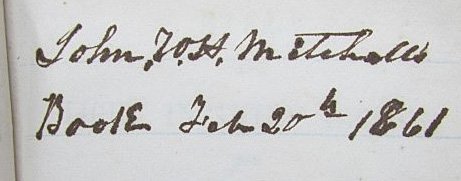 John, W. H. Mitchell's
Book Feb 20th 1861